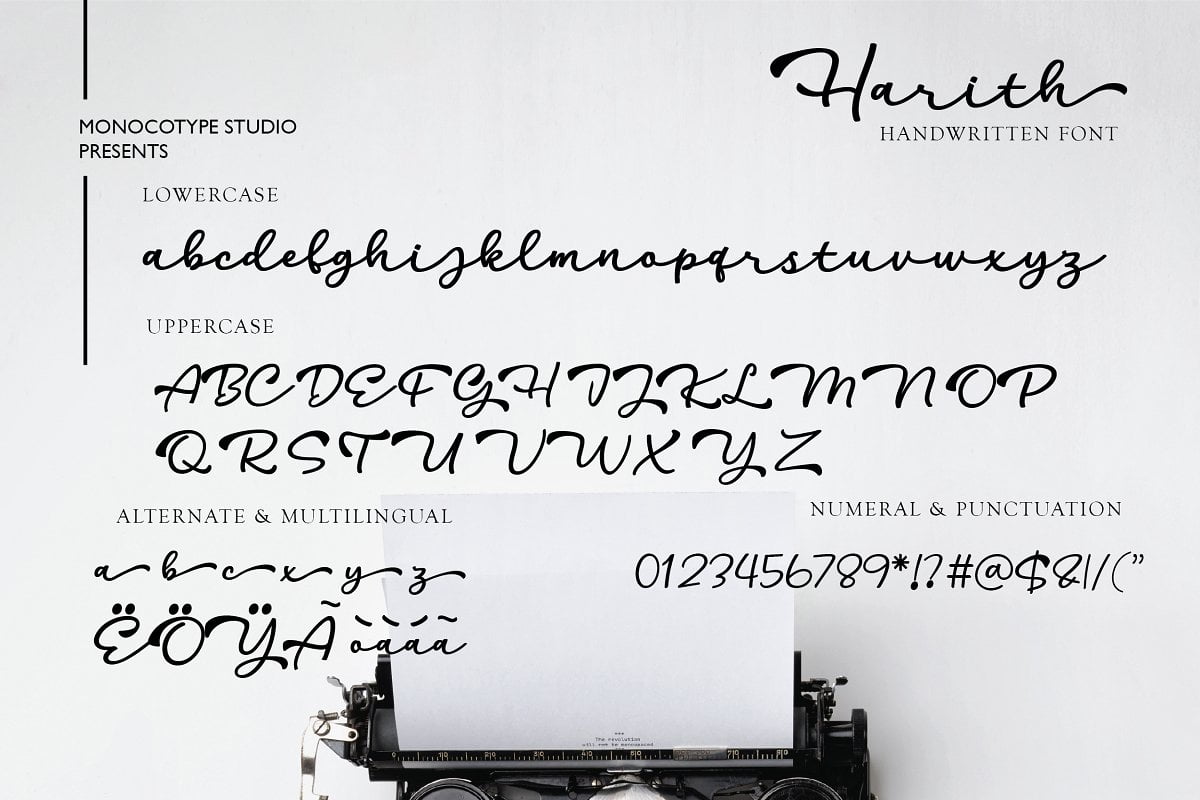 MONOCOTYPE STUDIO
PRESENTS
Harith
HANDWRITTEN FONT
LOWERCASE
abcdefghijklmnopqrstuvwxyz
UPPERCASE
ABCDEFGHIJKLMNOP
QRSTUVWXYZ
ALTERNATE & MULTILINGUAL
a b c x y z
ËÖŸÃ òàáã
NUMERAL & PUNCTUATION
0123456789*!?#@$&|/(”
***
The revolution
will not be monospaced
0 10 20 30 40 50 70 80